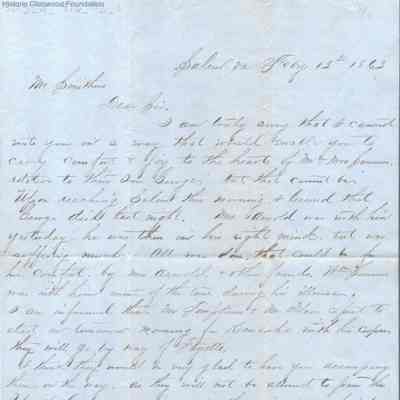 Historic Glenwood Foundation
Salem Va Feby 12th 1863
Mr Smithers
Dear Sir.
I am truly sorry that I cannot
write you in a way that would enable you to
carry comfort & joy to the hearts of Mr & Mrs
relative to their Son George, but that cannot be.
Upon reaching Salem this morning I learned that
George died last night. Mr Arnold was with him
yesterday he was then in his right mind, but was
suffering much. All was done that could be for
his comfort, by Mr Arnold, & other friends. Wm
was with him most of the time during his illness.
I am informed that Mr & Mr expect to
start tomorrow morning for Kanawha with his corpse
they will go by way of Fayette.
I think they would be very glad to have you accompany
them on the way, as they will not be allowed to pass the